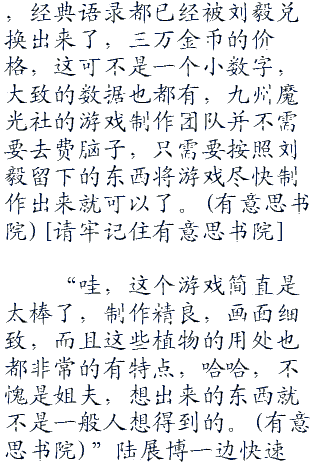 ，经典语录都已经被刘毅兑
换出来了，三万金币的价
格，这可不是一个小数字，
大致的数据也都有，九州魔
光社的游戏制作团队并不需
要去费脑子，只需要按照刘
毅留下的东西将游戏尽快制
作出来就可以了。(有意思书
院)[请牢记住有意思书院]
“哇，这个游戏简直是
太棒了，制作精良，画面细
致，而且这些植物的用处也
都非常的有特点，哈哈，不
愧是姐夫，想出来的东西就
不是一般人想得到的。(有意
思书院)”陆展博一边快速